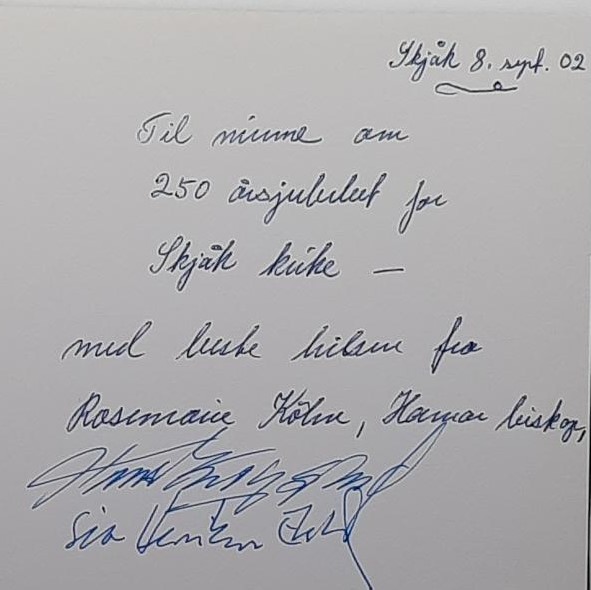 Skjåk 8. sept. 02
Til minne om
250 årsjubileet for
Skjåk kirke —
med beste hilsen fra
Rosemarie Köhn, Hamar biskop,
Siv